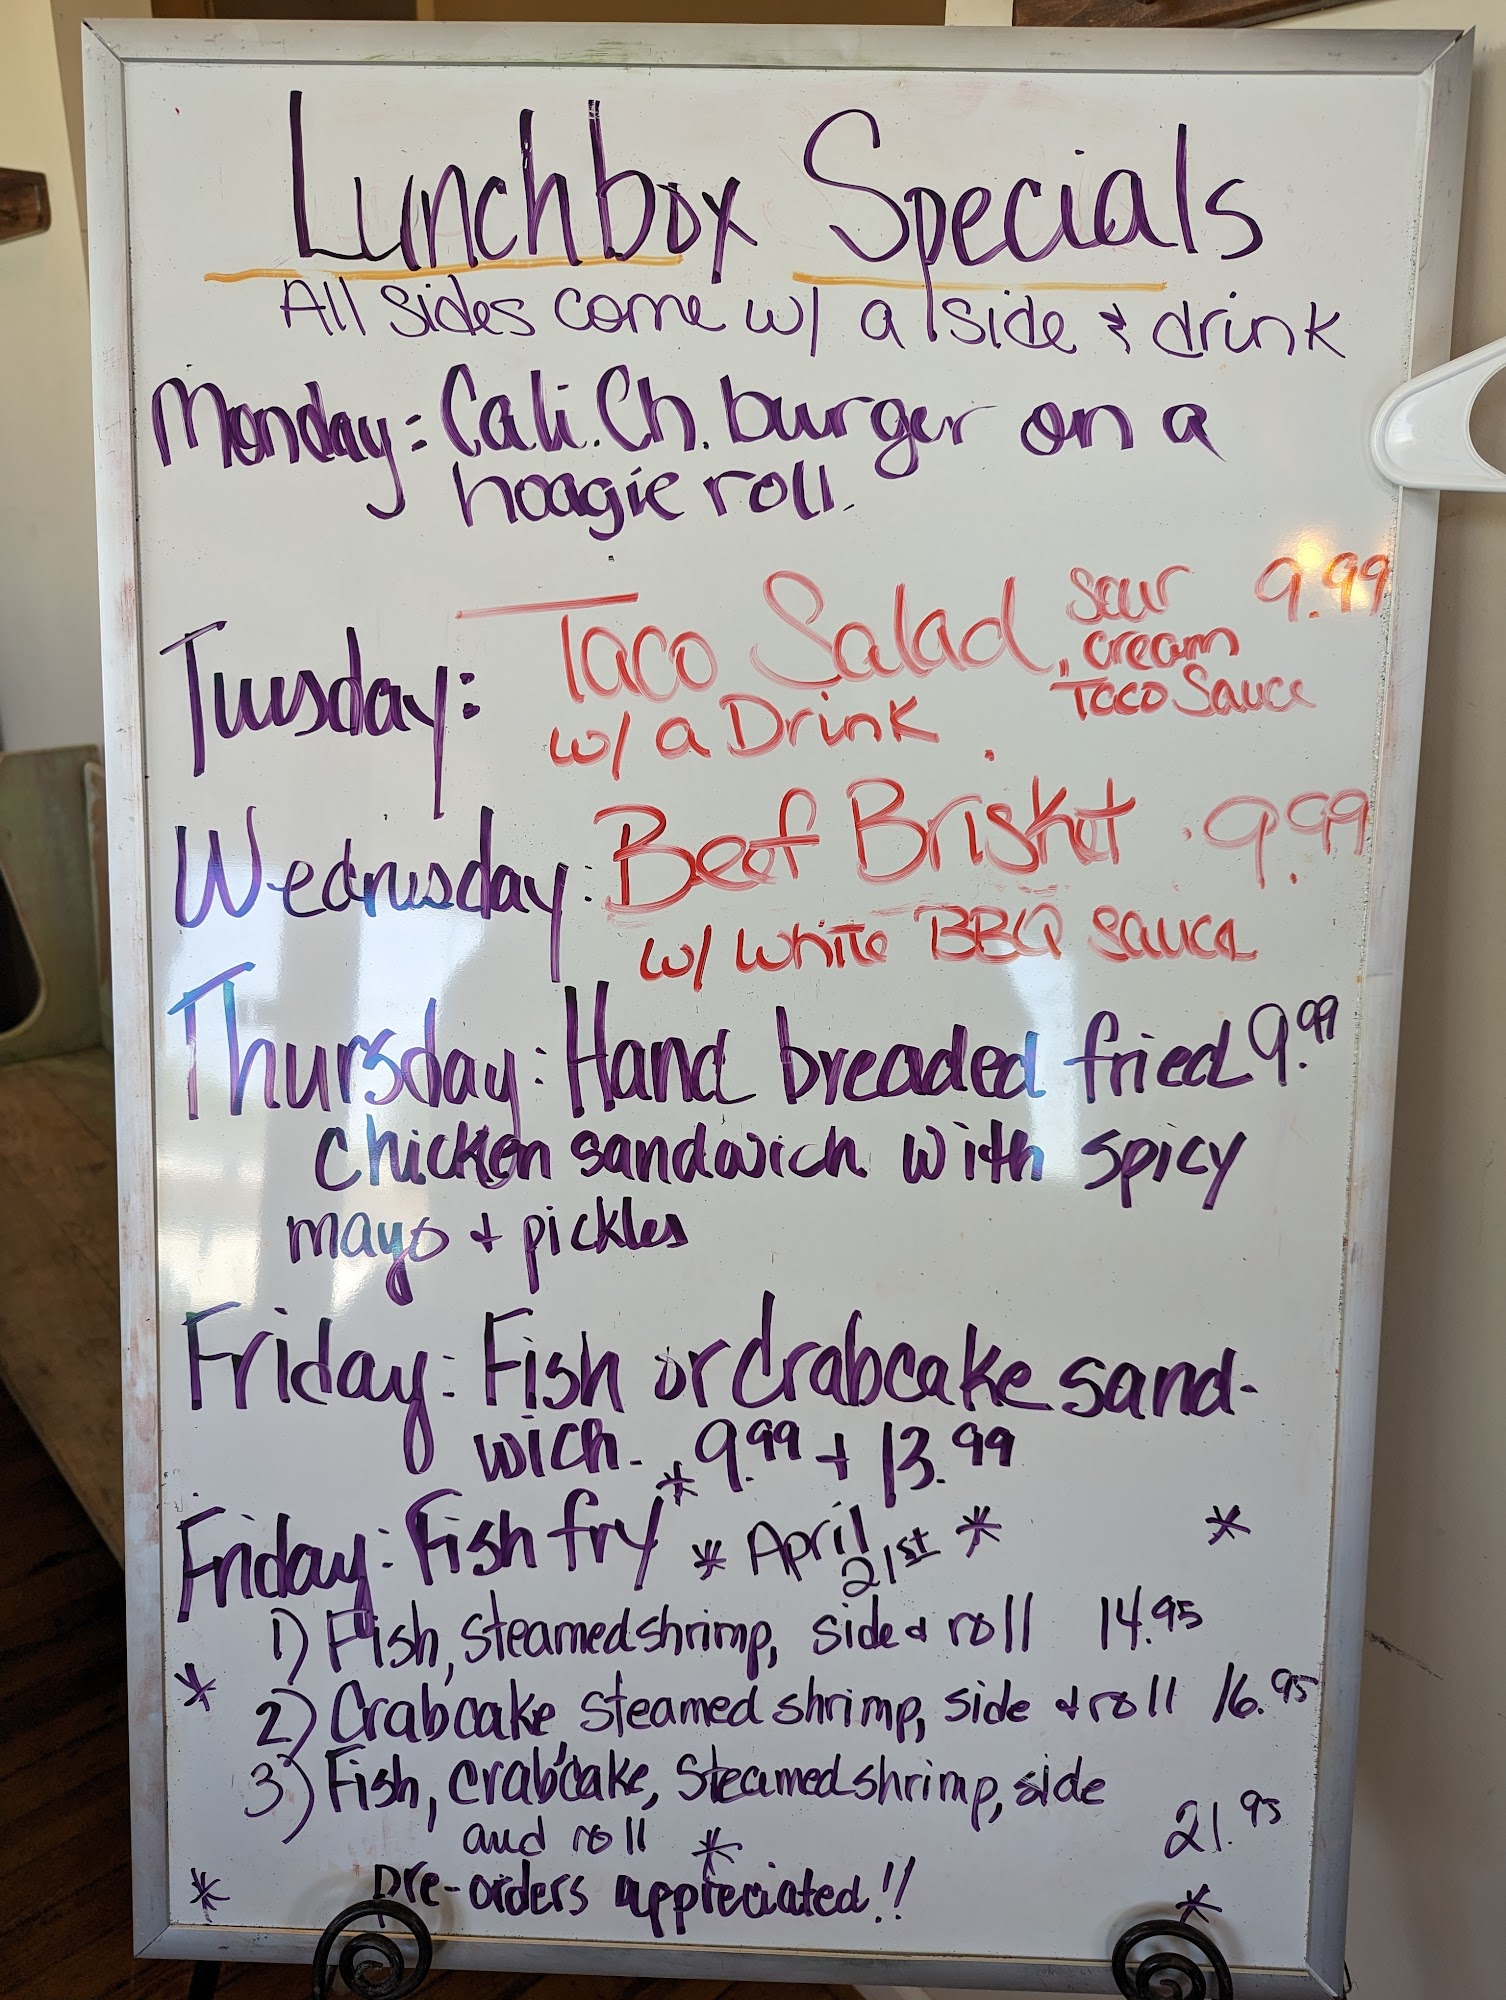 Lunchbox Specials
All sides come w/ a side & drink
Monday: Cali. Ch. burger on a
hoagie roll.
Tuesday: Taco Salad, sour cream Taco Sauce 9.99
w/ a Drink
Wednesday: Beef Brisket 9.99
w/ white BBQ sauce
Thursday: Hand breaded fried 9.99
chicken sandwich with spicy
mayo + pickles
Friday: Fish or Crabcake sand-
wich. 9.99 + 13.99
Friday: Fish fry * * April 21st * *
1) Fish, steamed shrimp, side + roll 14.95
* 2) Crabcake, steamed shrimp, side + roll 16.95
3) Fish, crabcake, steamed shrimp, side
and roll * 21.95
* pre-orders appreciated!! *